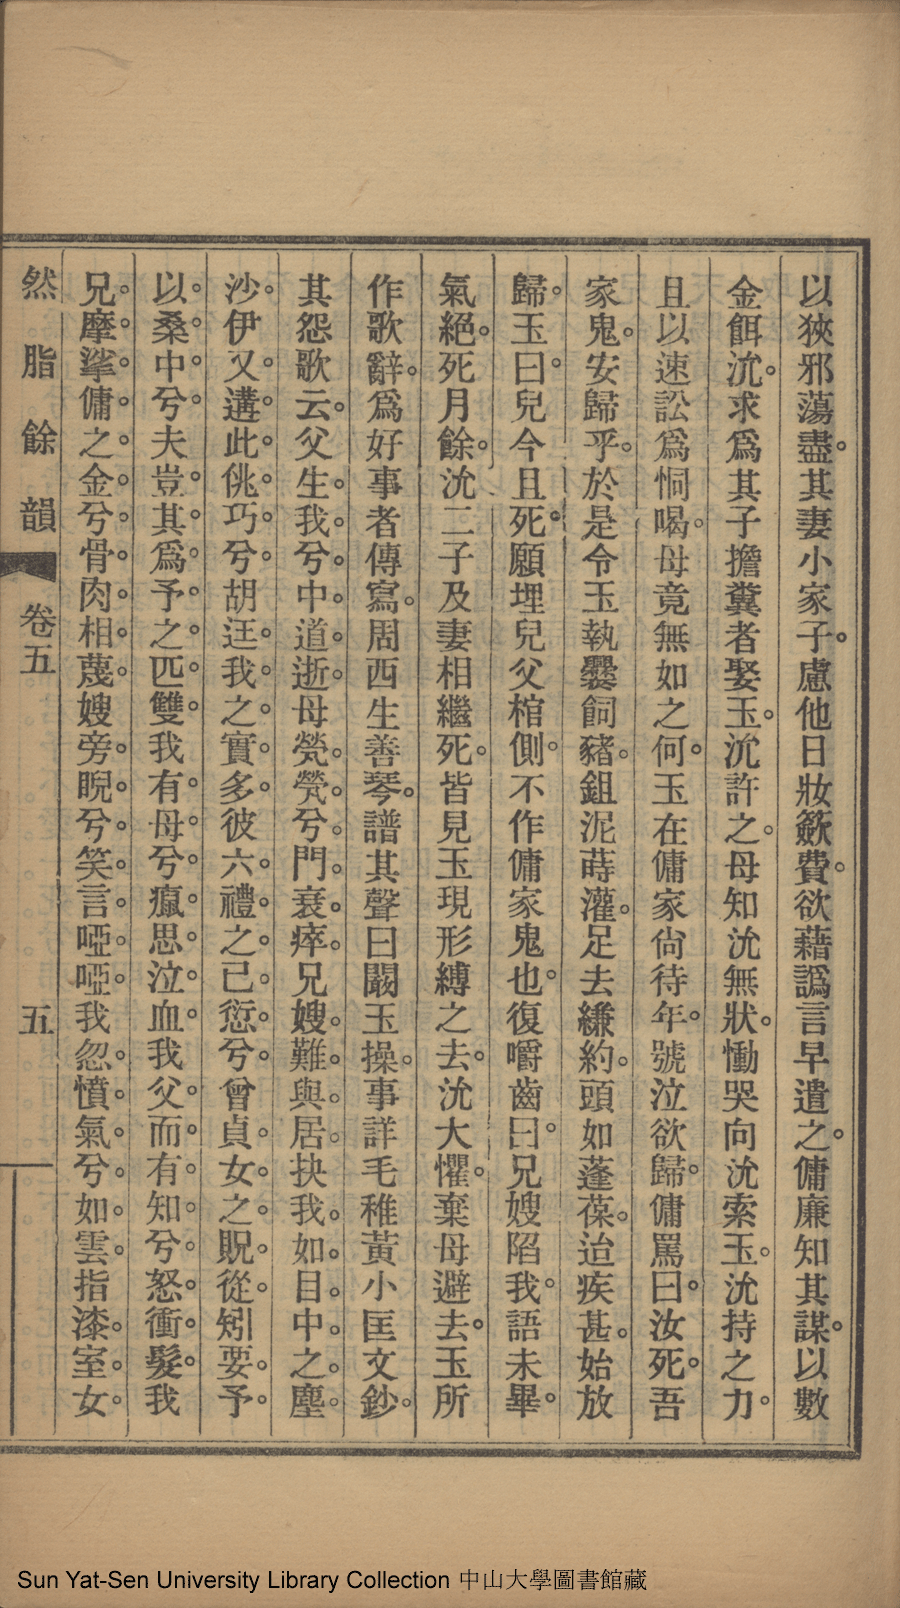 以狹邪蕩盡。其妻小家子。慮他日妝籨費。欲藉譌言早遣之。傭廉知其謀。以數
金餌沇。求爲其子擔糞者娶玉。沇許之。母知沇無狀。慟哭向沇索玉。沇持之力。
且以速訟爲恫喝。母竟無如之何。玉在傭家尙待年。號泣欲歸。傭罵曰。汝死。吾
家鬼。安歸乎。於是令玉執爨飼豬。鉏泥蒔灌。足去縑約。頭如蓬葆。迨疾甚。始放
歸。玉曰。兒今且死。願埋兒父棺側。不作傭家鬼也。復嚼齒曰。兄嫂陷我。語未畢。
氣絕。死月餘。沇二子及妻相繼死。皆見玉現形縛之去。沇大懼。棄母避去。玉所
作歌辭。爲好事者傳寫。周西生善琴。譜其聲曰闞玉操。事詳毛稚黃小匡文鈔。
其怨歌云。父生我兮。中道逝。母煢煢兮。門衰瘁。兄嫂難與居。抉我如目中之塵
沙。伊又遘此佻巧兮。胡迋我之實多。彼六禮之已愆兮。曾貞女之貺從。矧要予
以桑中兮。夫豈其爲予之匹雙。我有母兮。瘋思泣血。我父而有知兮。怒衝髮。我
兄摩挲傭之金兮。骨肉相蔑。嫂旁睨兮。笑言啞啞。我忽憤氣兮。如雲指漆室女。
然脂餘韻
卷五
五
Sun Yat-Sen University Library Collection 中山大學圖書館藏